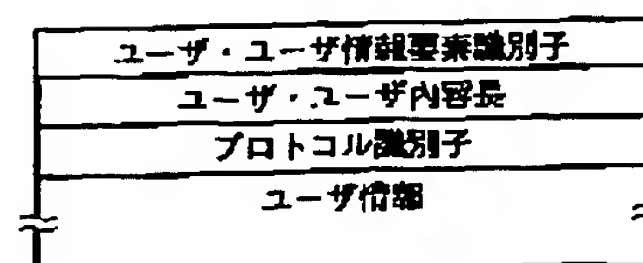 ユーザ・ユーザ情報要素識別子
ユーザ・ユーザ内容長
プロトコル識別子
ユーザ情報